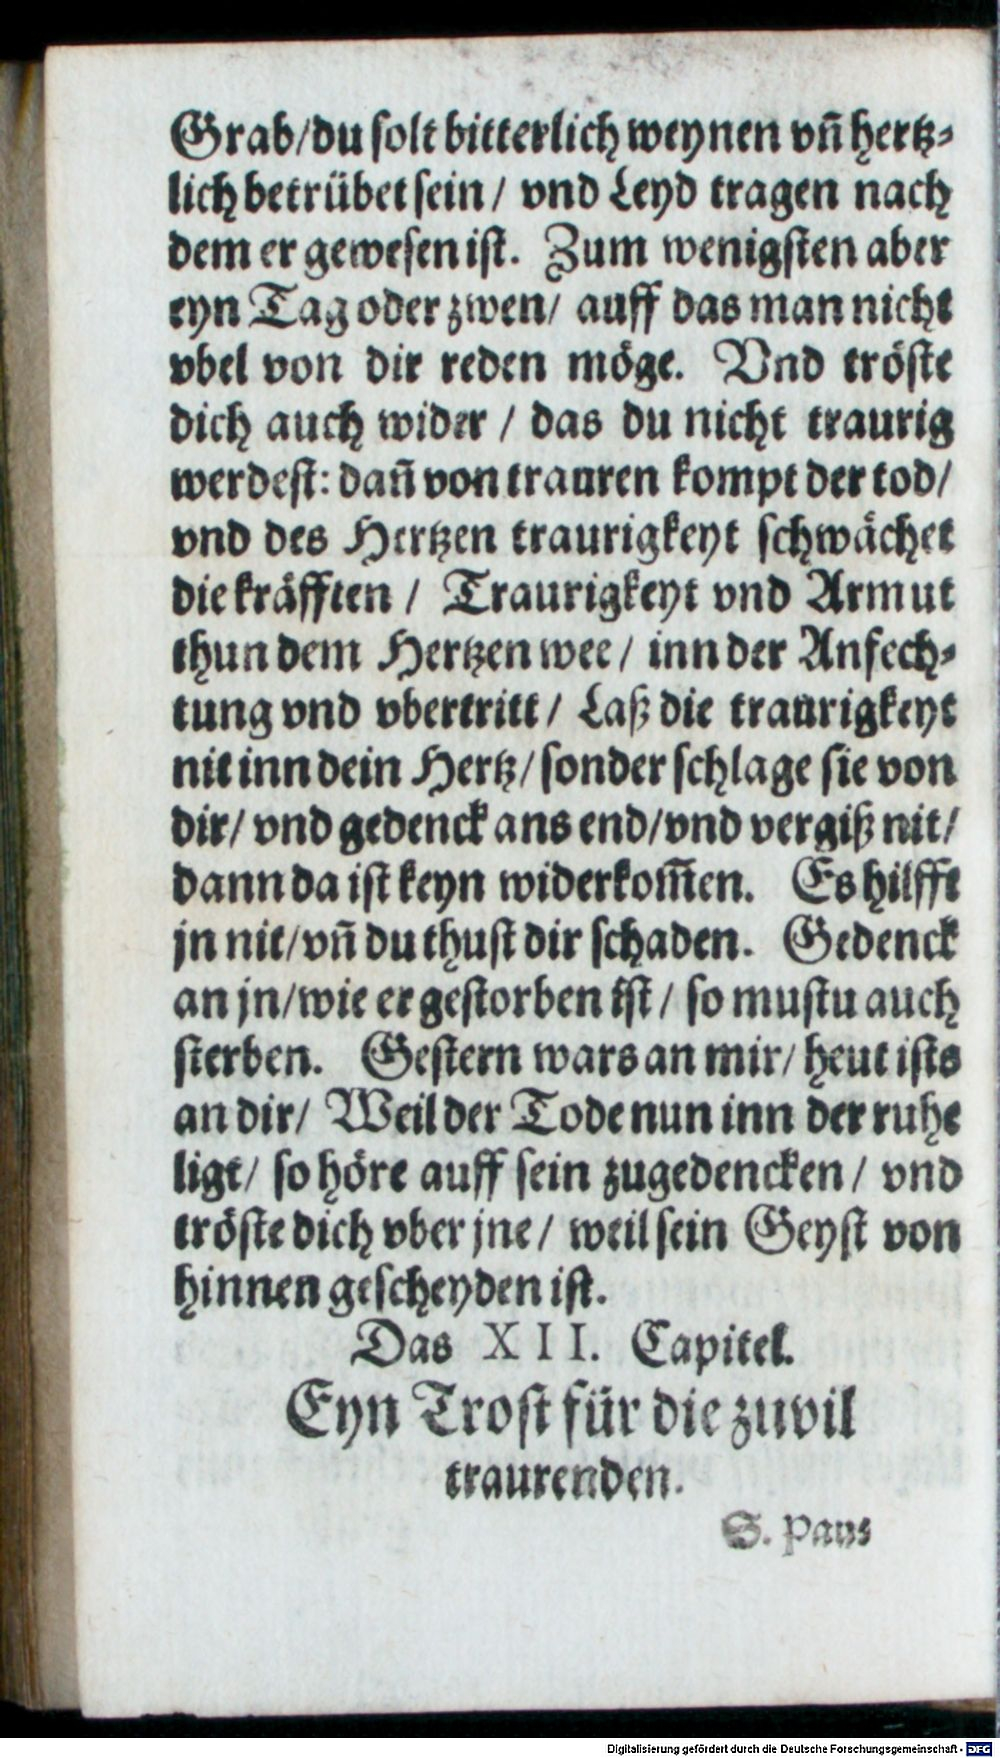 Grab/du solt bitterlich weynen vñ hertz⸗
lich betrübet sein / vnd Leyd tragen nach
dem er gewesen ist. Zum wenigsten aber
eyn Tag oder zwen/ auff das man nicht
vbel von dir reden möge. Vnd tröste
dich auch wider / das du nicht traurig
werdest: dañ von trauren kompt der tod/
vnd des Hertzen traurigkeyt schwächet
die kräfften / Traurigkeyt vnd Armut
thun dem Hertzen wee / inn der Anfech⸗
tung vnd vbertritt / Laß die traurigkeyt
nit inn dein Hertz/ sonder schlage sie von
dir/ vnd gedenck ans end/vnd vergiß nit/
dann da ist keyn widerkom̃en. Es hilfft
jn nit/vñ du thust dir schaden. Gedenck
an jn/wie er gestorben ist / so mustu auch
sterben. Gestern wars an mir/ heut ists
an dir/ Weil der Tode nun inn der ruhe
ligt/ so höre auff sein zugedencken / vnd
tröste dich vber jne / weil sein Geyst von
hinnen gescheyden ist.
Das XII. Capitel.
Eyn Trost für die zuvil
traurenden.
S. Paus
Digitalisierung gefördert durch die Deutsche Forschungsgemeinschaft - DFG